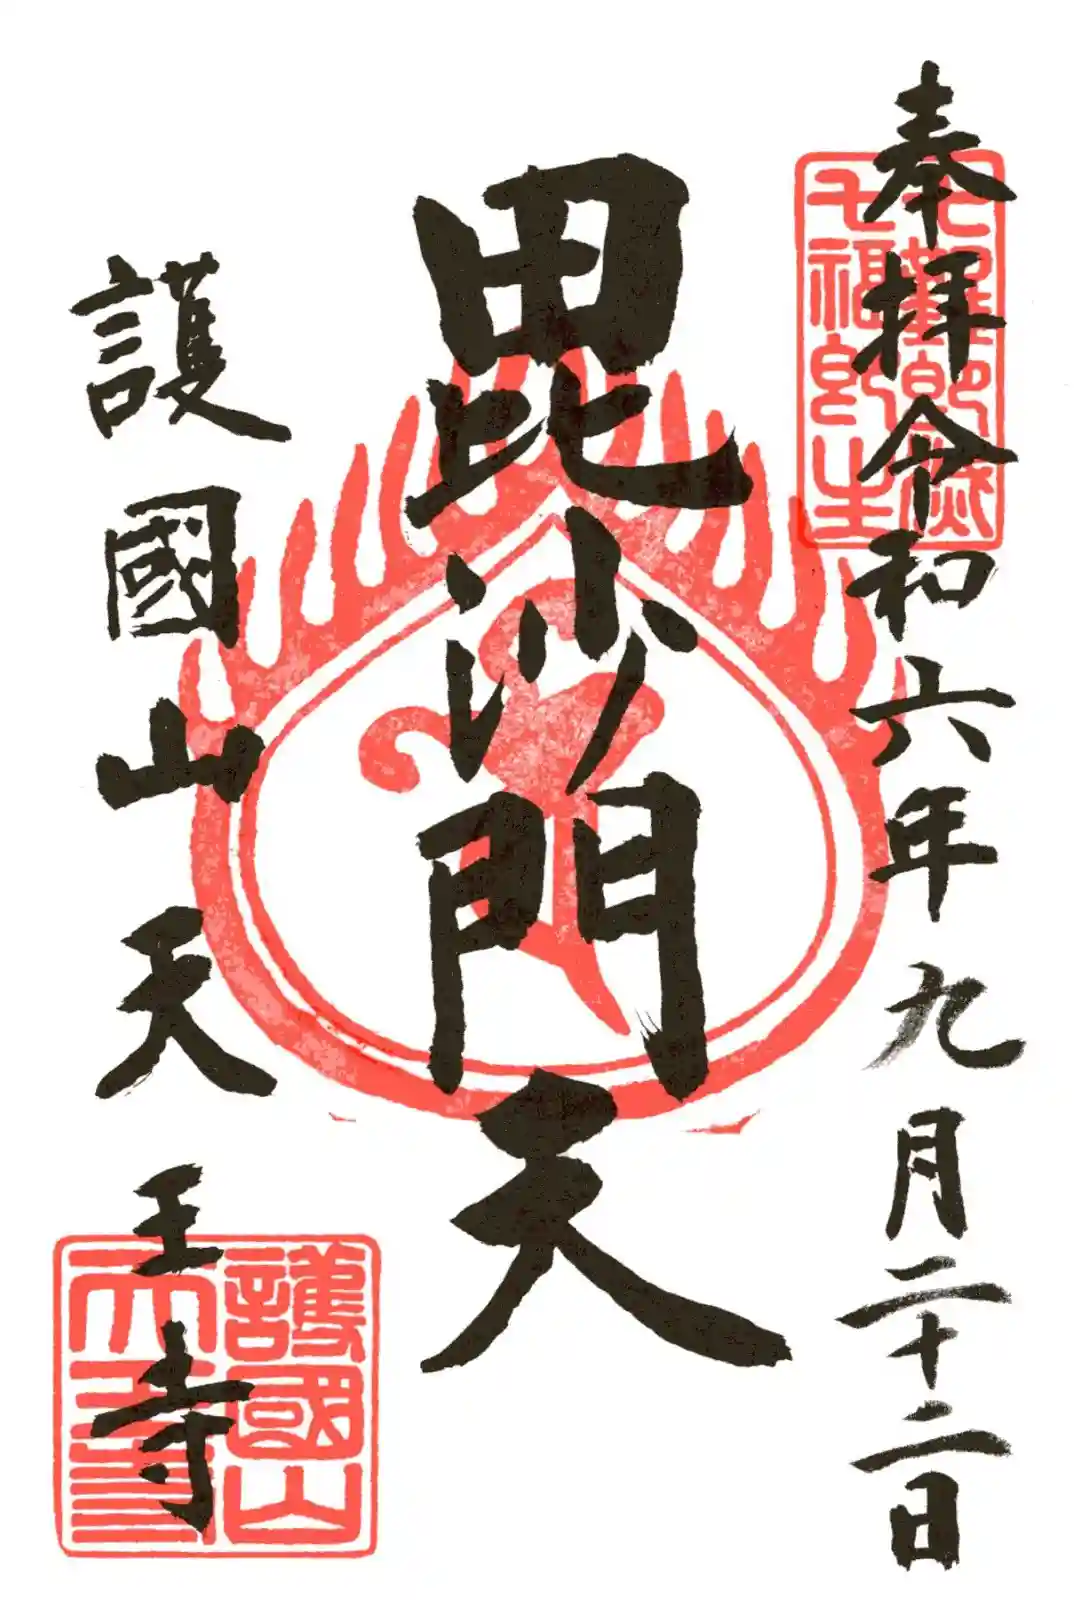 奉拝令和六年九月二十二日
七難即滅
七福即生
毘沙門天
護國山天王寺
護國山
天王寺